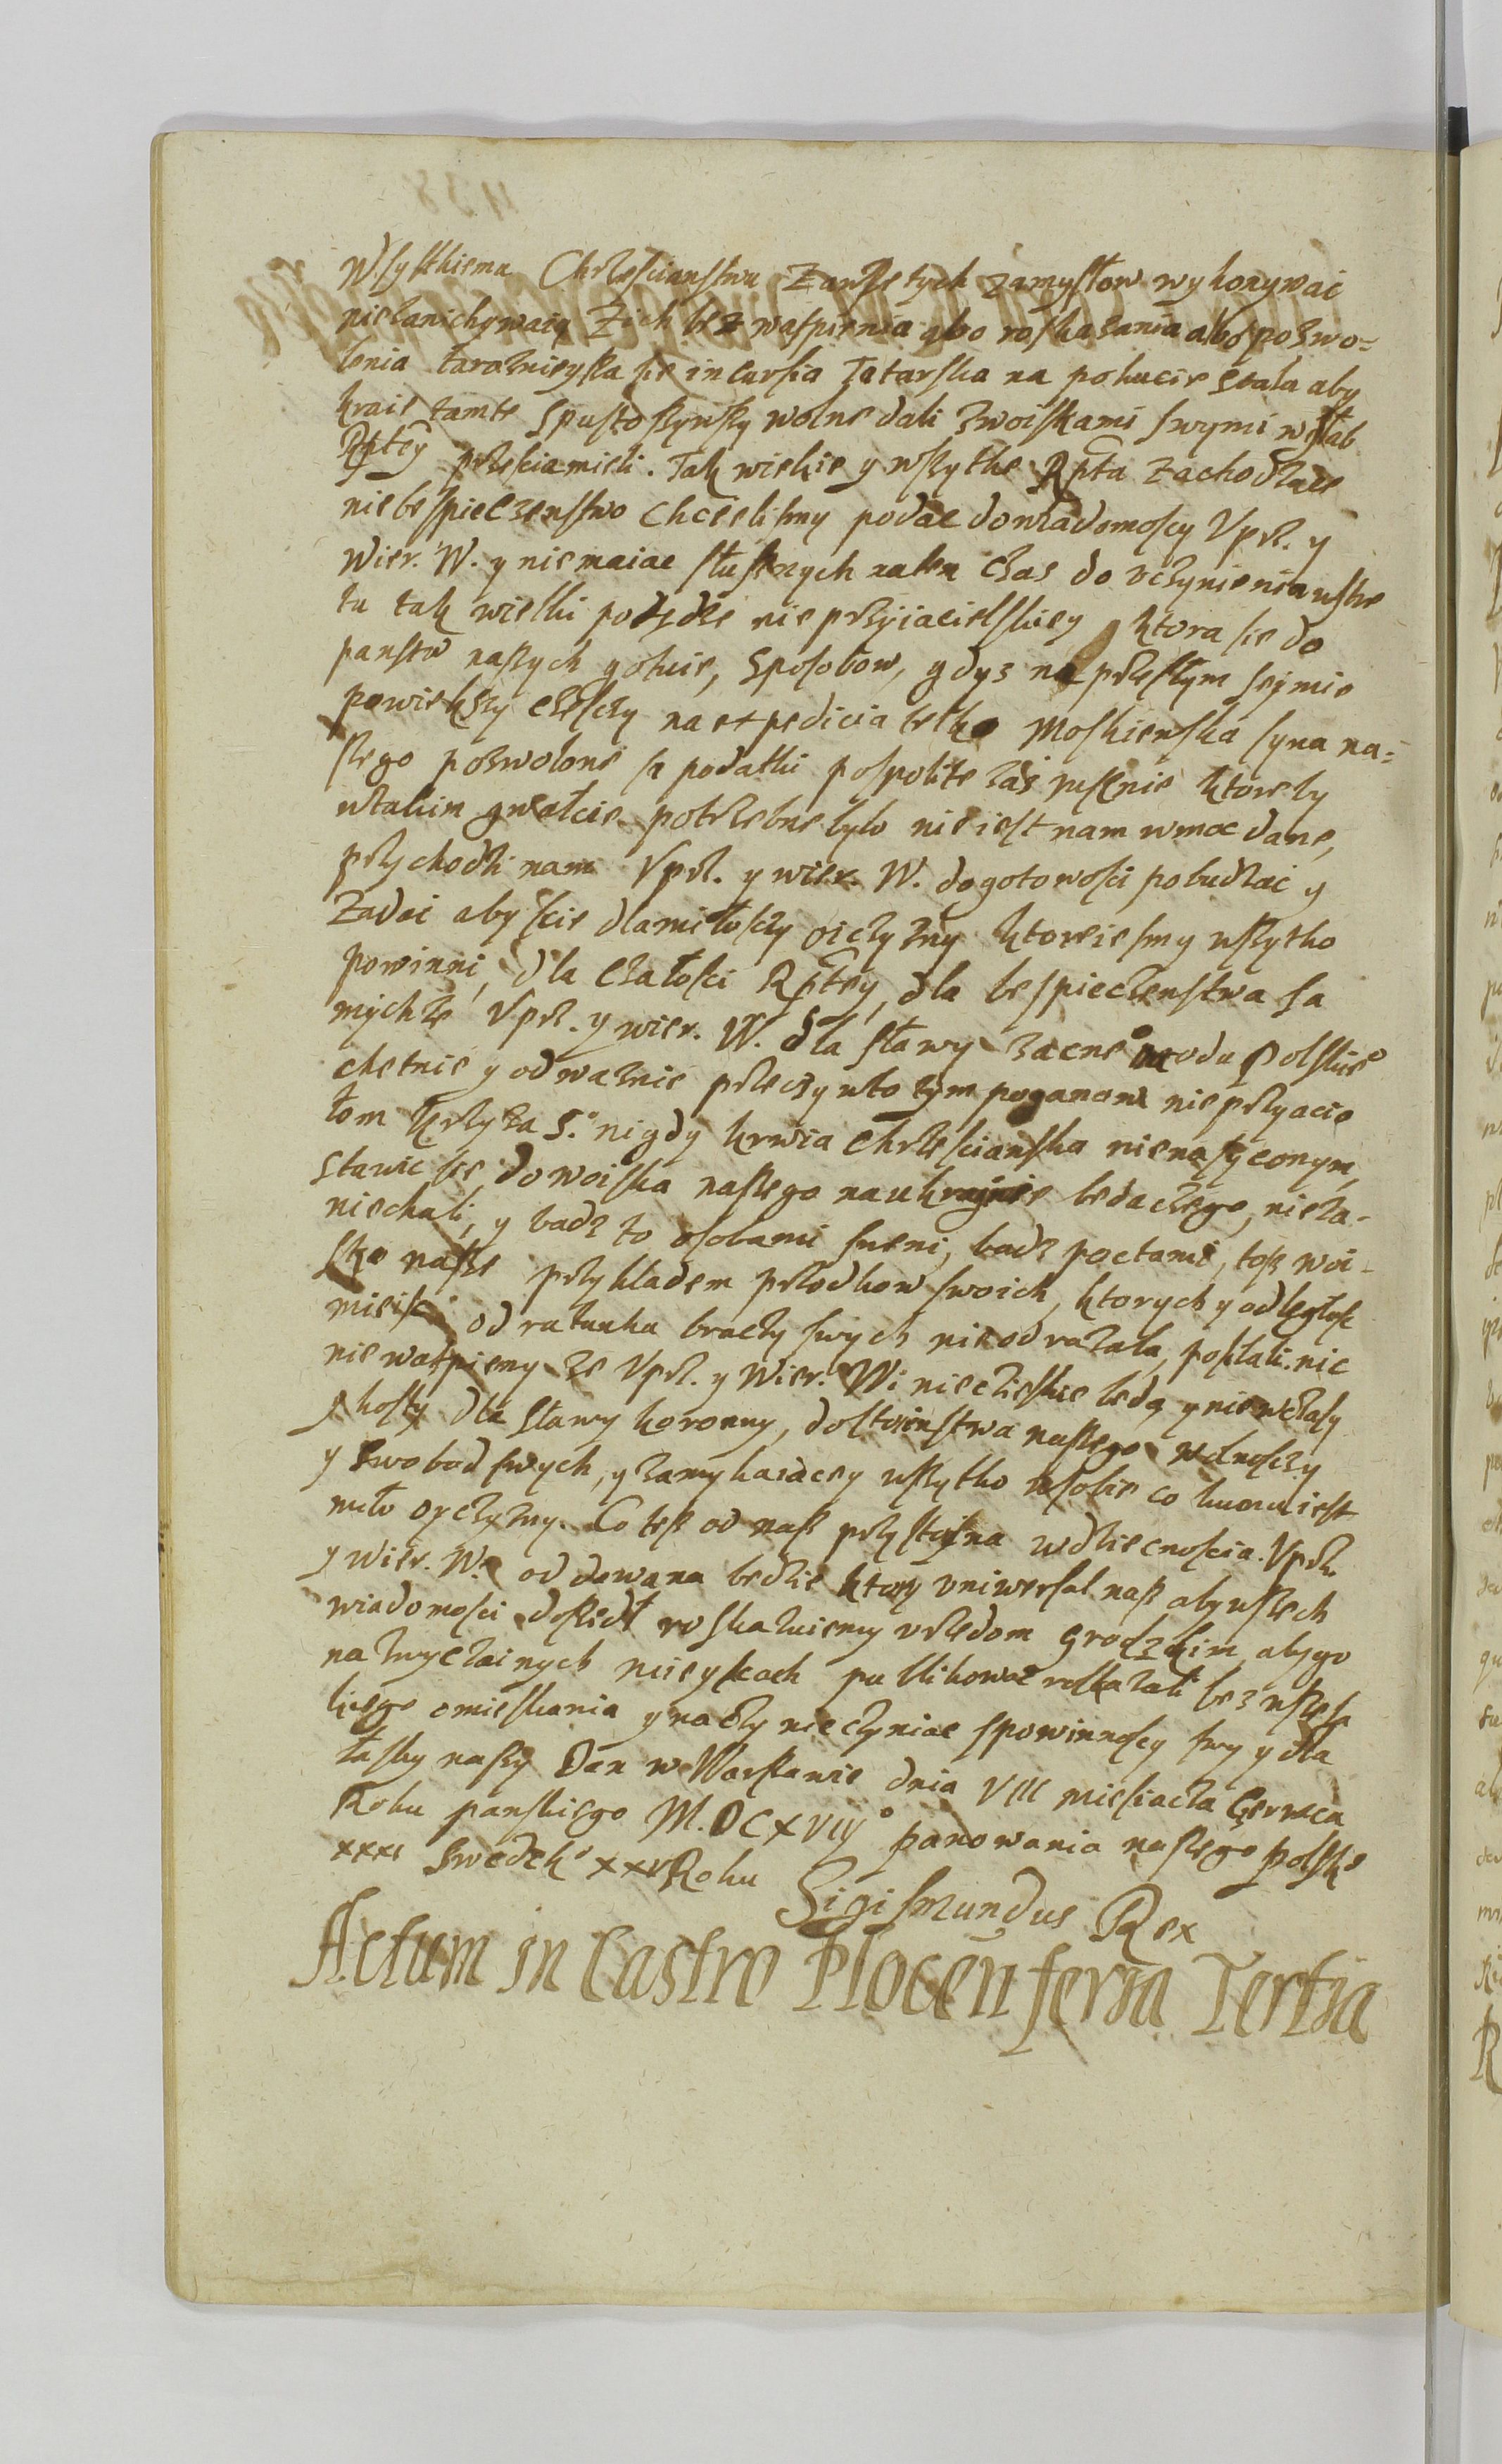 Wsystkiemu Chrzescianstwu Zawzetych zamysłow wykonywać
niezanichywaią Zich bez wątpienia albo roskasania albo pozwo=
lenia taraznieyska sie incursia Tatarska na pokucie stala aby
kraie tamte spustoszywszy wolne dali zwoiskami swymi wgłab
Rptey przesciamieli. Tak wielkie y wszytke Rpta zachodzace
niebespieczenstwo chcielismy podac dowiadomoscy Uprz. y
Wier. W. y niemaiac słusznych naten czas do vczynienia wstre
tu tak wielki potędze nieprzyiacielskiey ktora sie do
panstw naszych gotuie, sposobow, gdyz na przeszłym seymie
powiekszy czesczy na expedicia telko Moskiewska syna na=
szego pozwolone są podatki pospolite zas rusznie ktoreby
wtakim gwałcie potrzebne było nieiest nam wmoc dane,
przychodzi nam Uprz. y wier. W. do gotowosci pobudzać y
Zadac abyscie dlamiłosczy oiczyzny ktoreiesmy wszytko
powinni, dla czałosci Rptey, dla bespieczenstwa sa
mychze Uprz. y wier. W. dla sławy zacne° narodu Polskie°
chetnie y odwaznie przeczywko tym poganom nieprzyacio
łom krzyza S.° nigdy krwia chrzescianska nienasyconym,
stawic sie do woiska naszego na ukrainie bedaczego, nieza-
niechali, y badz to osobami swemi, badz pocztami, tosz woi-
sko nasze przykladem przodkow swoich, ktorych y odległosc
mieisc od ratunku braczy swych nieodrazala, posilali. nic
niewatpiemy ze Uprz. y Wier. W. niecieszkie bedą y niewczasy
y koszty dla sławy koronny, dostoienstwa naszego wolnosczy
y swobod swych, y zamykaiacey wszytko wsobie co kumu iest
miło oyczyzny. Co tesz od nasz przystoyna wdziecnoscia. Uprz.
y wier. W. oddawana bedzie ktory vniwersal nasz aby wszech
wiadomosci doszedł roskazuiemy vrzedom grodzkim abygo
na zwyczainych mieyscach publikować roskazali bez wszela
kiego omieskania ynaczy nieczyniac spowinnoscy swy y dla
łasky naszy Dan w Warszawie dnia VIII miesiacza Czerwca
Roku panskiego M.DCXVII° panowania naszego polsk°
xxxi Swedck° xxv Roku
Sigismundus Rex
Actum in Castro Plocen feria Tertia